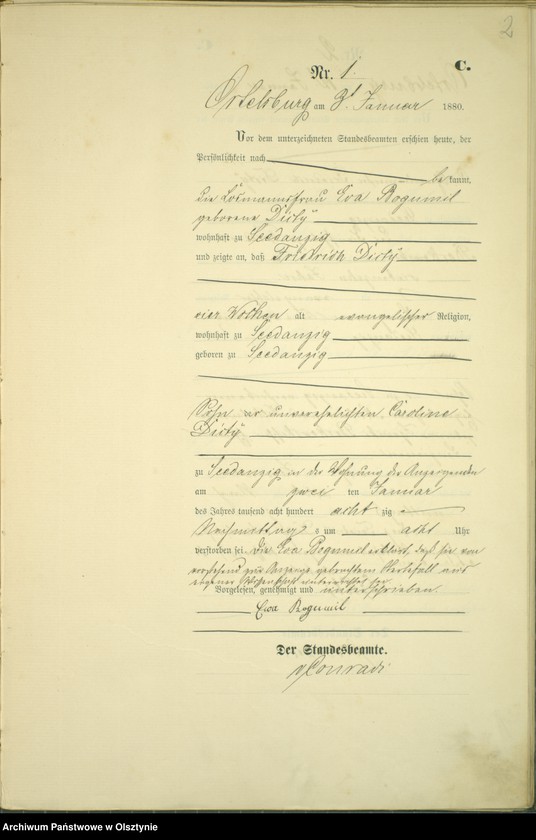 2
C.
Nr. 1.
Ortelsburg am 3t Januar 1880.
Vor dem unterzeichneten Standesbeamten erschien heute, der
Persönlichkeit nach
be kannt,
die Losmannsfrau Eva Bogumil
geborene Dicty
wohnhaft zu Seedanzig
und zeigte an, daß Friedrich Dicty
vier Wochen alt evangelischer Religion,
wohnhaft zu Seedanzig
geboren zu Seedanzig
Sohn der unverehelichten Caroline
Dicty
zu Seedanzig in der Wohnung der Anzeigenden
am zwei ten Januar
des Jahres tausend acht hundert acht zig
Nachmittags um acht Uhr
verstorben sei. Die Eva Bogumil erklärt, daß sie von
vorstehend zur Anzeige gebrachtem Sterbefall aus
eigener Wissenschaft unterrichtet sei.
Vorgelesen, genehmigt und unterschrieben.
Ewa Bogumil
Der Standesbeamte.
vConradi
Archiwum Państwowe w Olsztynie